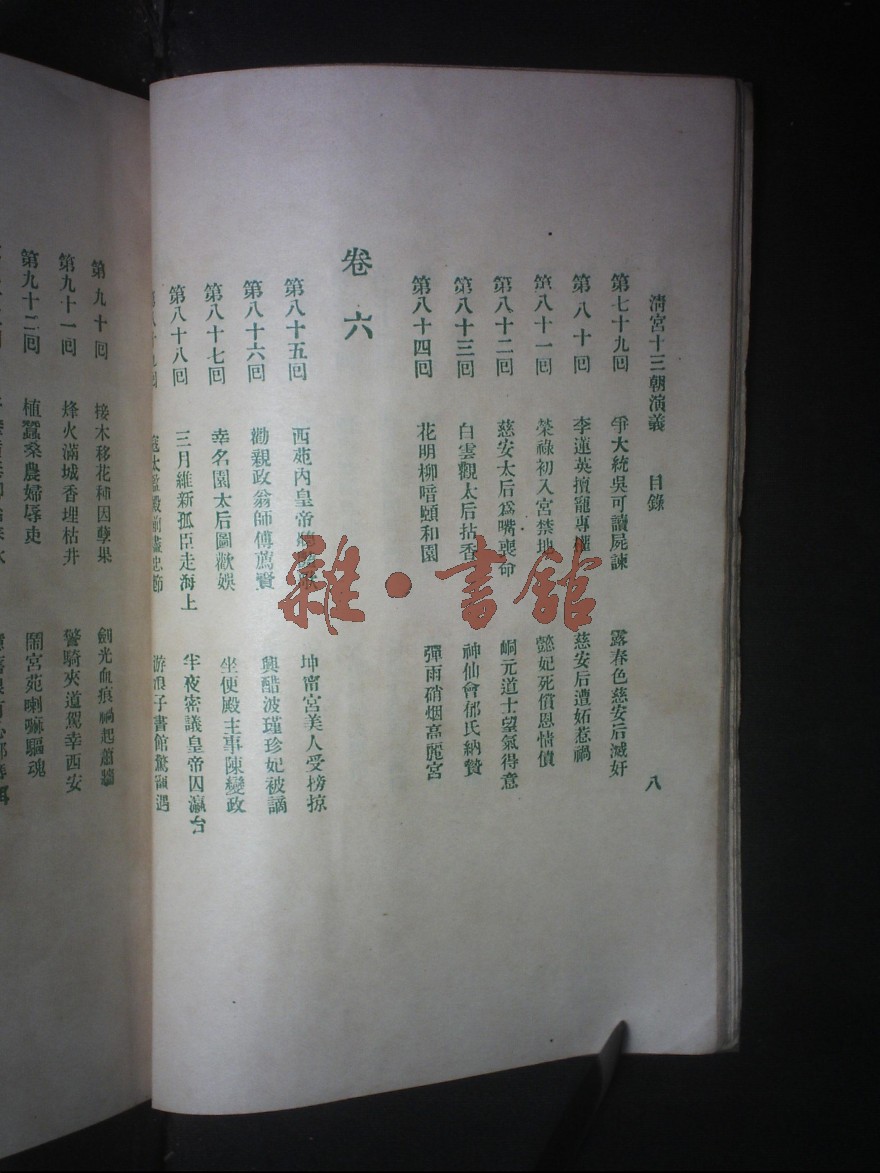 清宮十三朝演義 目錄 八
第七十九回 爭大統吳可讀屍諫 露春色慈安后滅奸
第八十回 李蓮英擅寵專權 慈安后遭妬惹禍
第八十一回 榮祿初入宮禁地 懿妃死償恩情債
第八十二回 慈安太后爲嘴喪命 峒元道士望氣得意
第八十三回 白雲觀太后拈香 神仙會郁氏納贊
第八十四回 花明柳暗頤和園 彈雨硝烟高麗宮
卷六
第八十五回 西苑內皇帝 坤甯宮美人受榜掠
第八十六回 勸親政翁師傅薦賢 興酷波瑾珍妃被謫
第八十七回 幸名園太后圖歡娛 坐便殿主事陳變政
第八十八回 三月維新孤臣走海上 半夜密議皇帝囚瀛台
第八十九回 寇太監殿前盡忠節 游浪子書館驚豔遇
第九十回 接木移花種因孽果 劍光血痕禍起蕭牆
第九十一回 烽火滿城香埋枯井 警騎夾道駕幸西安
第九十二回 植蠶桑農婦辱吏 鬧宮苑喇嘛驅魂
雜·書館